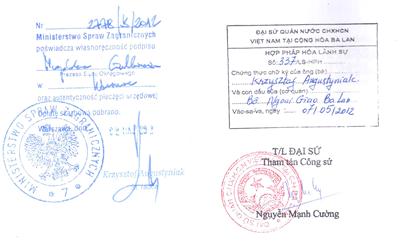 Nr 2778/S/2012
Ministerstwo Spraw Zagranicznych
poświadcza własnoręczność podpisu
Magdalena
Prezesa S.... Okręgowego
w Warszawie
oraz autentyczność pieczęci urzędowej
pobrano.
Warszawa, dnia
Krzysztof Augustyniak
MINISTERSTWO SPRAW ZAGRANICZNYCH
* 7 *
ĐẠI SỨ QUÁN NƯỚC CHXHCN
VIỆT NAM TẠI CỘNG HÒA BA LAN
HỢP PHÁP HÓA LÃNH SỰ
Số: 337/LS-HPH
Chứng thực chữ ký của ông (bà)
Krzysztof Augustyniak
Và con dấu của (cơ quan)
Bộ Ngoại Giao Ba Lan
Vác-sa-va, ngày 07/05/2012
T/L ĐẠI SỨ
Tham tán Công sứ
Nguyễn Mạnh Cường